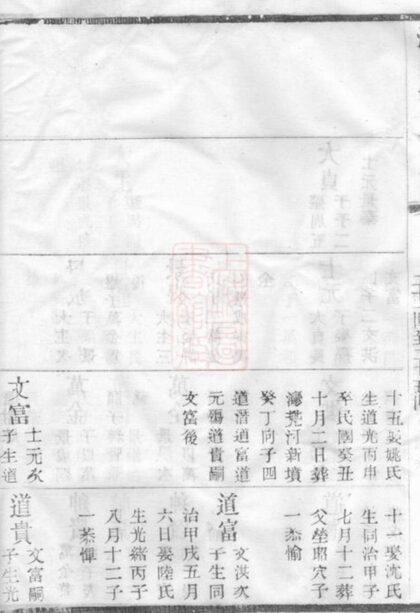 十五娶姚氏
生道光丙申
卒民國癸丑
十月二日葬
灣荒河新墳
癸丁向子四
道潛道富道
元殤道貴嗣
文富後
文富
士元次
子生道
十一娶沈氏
生同治甲子
七月十二葬
父塋昭穴子
一恭愉
道富
文淇次
子生同
治甲戌五月
六日娶陸氏
生光緒丙子
八月十二子
一恭惲
道貴
文富嗣
子生光